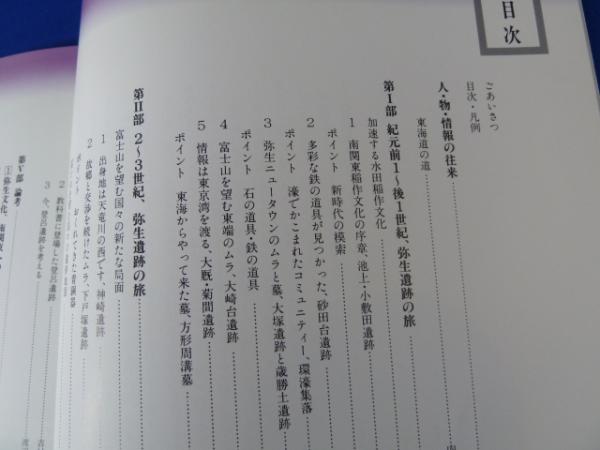 目次
ごあいさつ
目次・凡例
人・物・情報の往来
東海道の道
第Ⅰ部 紀元前1〜後1世紀、弥生遺跡の旅
加速する水田稲作文化
1 南関東稲作文化の序章、池上・小敷田遺跡
ポイント 新時代の模索
2 多彩な鉄の道具が見つかった、砂田台遺跡
ポイント 濠でかこまれたコミュニティー、環濠集落
3 弥生ニュータウンのムラと墓、大塚遺跡と歳勝土遺跡
ポイント 石の道具・鉄の道具
4 富士山を望む東端のムラ、大崎台遺跡
5 情報は東京湾を渡る、大厩・菊間遺跡
ポイント 東海からやって来た墓、方形周溝墓
第Ⅱ部 2〜3世紀、弥生遺跡の旅
富士山を望む国々の新たな局面
1 出身地は天竜川の西です、神崎遺跡
2 故郷と交渉を続けたムラ、下戸塚遺跡
ポイント おくれてきた青銅器
3 今、登呂遺跡を考える
2 教科書に登場した登呂遺跡
第Ⅴ部 論考
1 弥生文化、南関東